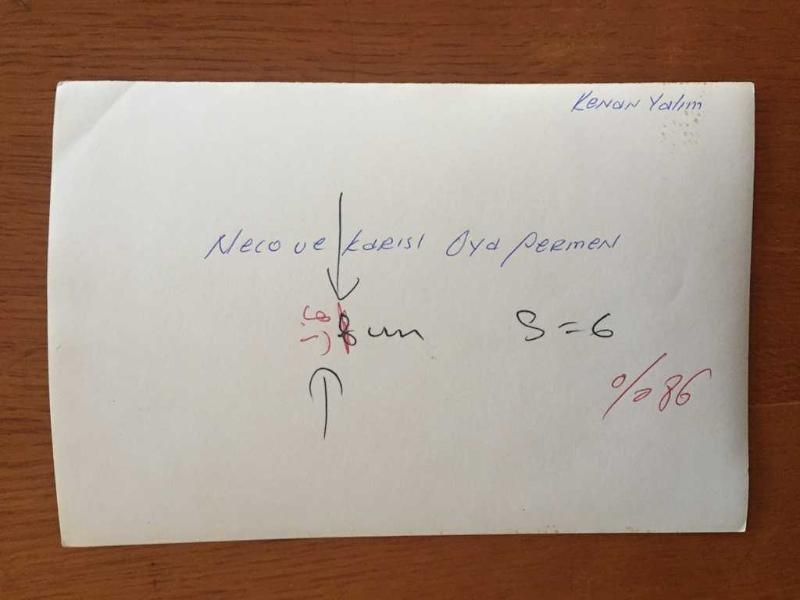 Kenan Yalım
Neco ve karısı Oya Permen
S = 6
% 86